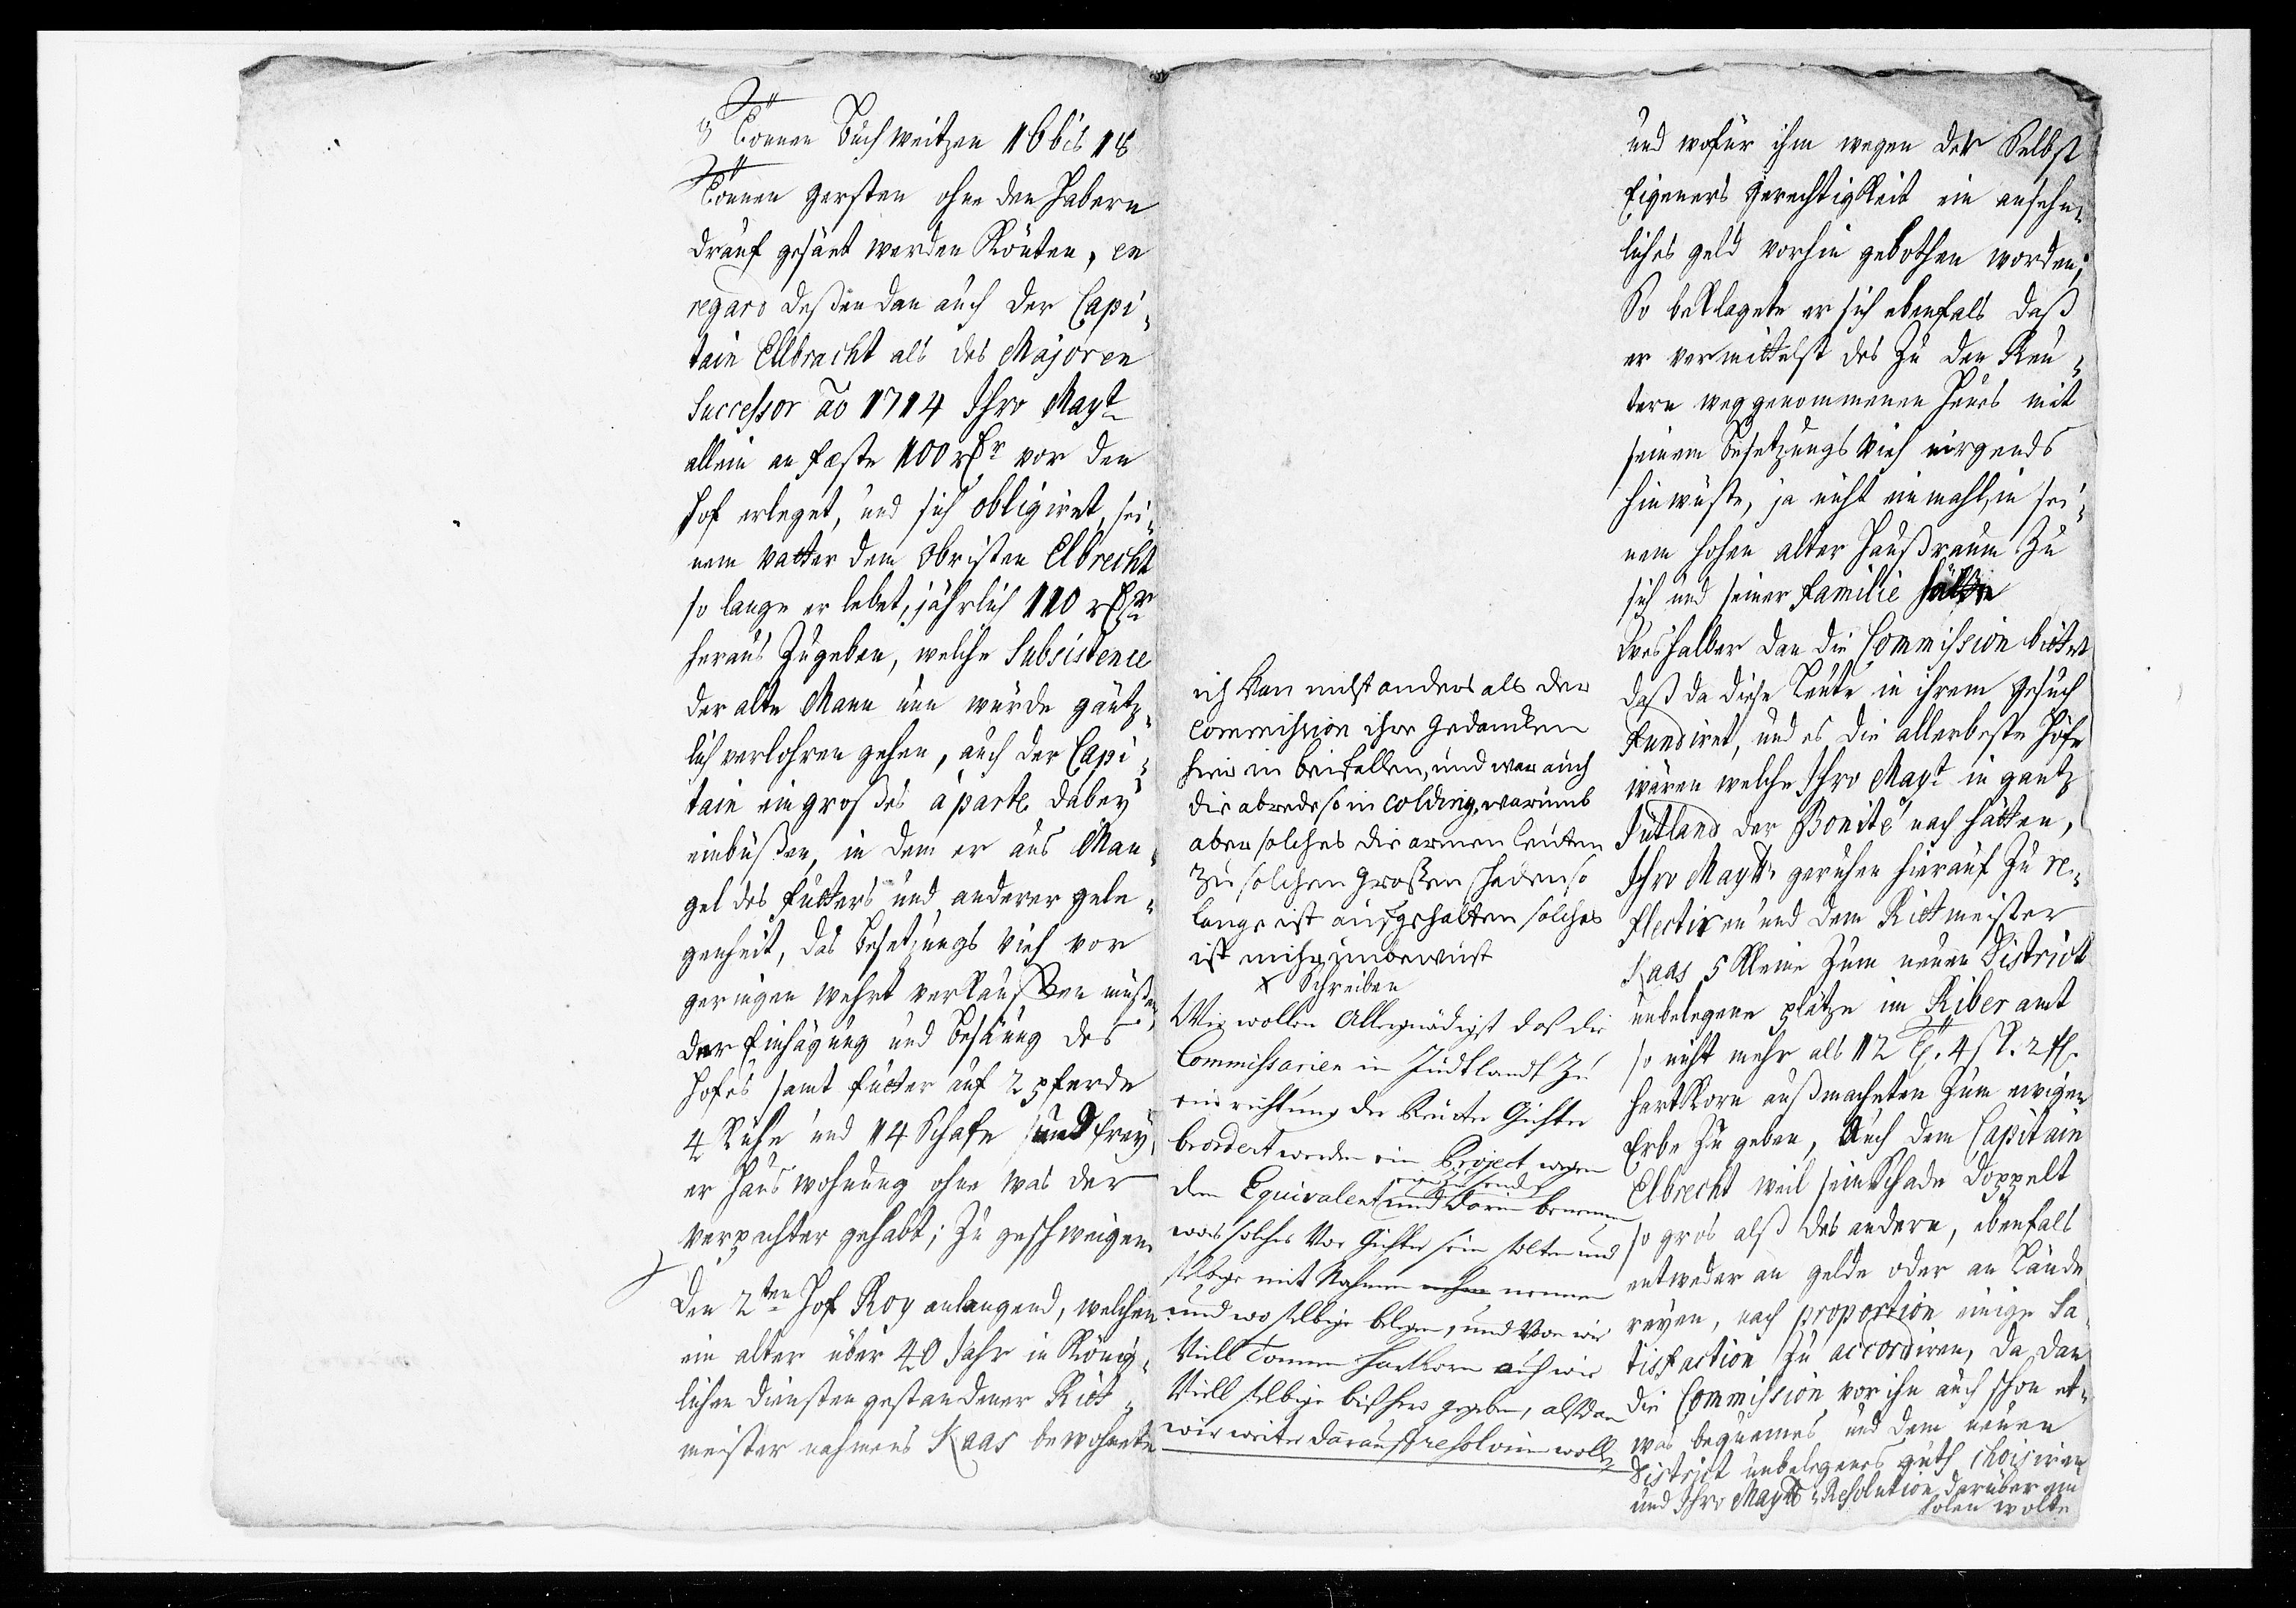 8 Tönnen Buchweitzen 16 bis 18
Tönnen gersten ohne den Habern
drauf gesäet werden könten, en
regard deßen dan auch der Capi-
tain Ellbracht als des Majoren
Successor ao 1714 Ihro Mayt
allein an feste 100 rthr vor den
Hof erleget, und sich obligiret, sei-
nem Vatter dem Obristen Elbrecht
so lange er lebet, jährlich 110 rthr
heraus zugeben, welche Subsistence
der alte Mann nun würde gäntz-
lich verlohren gehen, auch der Capi-
tain ein großes à parte dabey
einbüßen, in dem er aus Man-
gel des futters und anderer gele-
genheit, das Besetzungs Vieh vor
geringen wehrt verkauffen müßen,
der Einhägung und Besäung des
Hofes samt futter auf 2 pferde
4 Kühe und 14 Schafe und frey-
er Hauswohnung ohne was der
verpachter gehabt; zu geschweigen
Den 2ten Hof Roy anlangend, welchen
ein alter über 40 Jahr in König-
lichen Diensten gestandener Rit-
meister nahmens Kaas bewohnete
ich kan nicht anders als der
Commission ihre gedancken
hier in beifallen, und war auch
die abrede so in Colding, warumb
aber solches die armen leuten
zu solchen großen schaden so
lange ist aufgehalten solches
ist mihr unbewust
x Schreiben
Wir wollen Allergnädigst daß die
Commissarien in Jüdtlandt zu
einrichtung der Reuter Güther
beordert werden ein Project wegen
einzusenden
dem Equivalent und darin benennen
was solches vor Güther sein solten und
selbige mit Nahmen nennen
und wo selbige belegen, und von wie
viell Tonnen Hartkorn auch wie
viell selbige bißher gegeben, alßdan
wir weiter darauf resolviren wollen
und wofür ihm wegen der Selbst
Eigeners gerechtigkeit ein ansehn-
liches geld vorhin gebothen worden,
So beklagete er sich ebenfals daß
er vermittelst des zu den Reu-
tern weggenommenen Heues mit
seinem Besetzungs Vieh nirgends
hin wüste, ja nicht einmahl, in sei-
nem hohen alter Haußraum zu
sich und seiner familie hätte
Weshalber dan die Commission bittet
daß da diese Leute in ihrem gesuch
fundiret, und es die allerbeste Höfe
wären welche Ihro Mayt in gantz
Jütland der Bonité nach hätten,
Ihro Maytt geruhen hierauf zu re-
flectiren und dem Ritmeister
Kaas 5 kleine zum neuen District
unbelegene plätze im Riber amt
so nicht mehr als 12 Tp. 4 sk. 2 fh.
hartkorn außmacheten zum ewigen
Erbe zu geben, Auch dem Capitain
Elbrecht weil sein Schade doppelt
so gros alß des andern, ebenfals
entweder an gelde oder an Lände-
reyen, nach proportion einige Sa-
tisfaction zu accordiren, da dan
die Commission vor ihn auch schon et-
was bequemes und dem neuen
District unbelegenes guth choisiren
und Ihro Maytt Resolution darüber ein
holen wolte